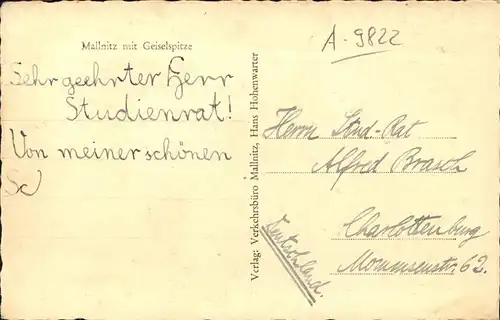 A-9822
Mallnitz mit Geiselspitze
Sehr geehrter Herr
Studienrat!
Von meiner schönen
Sc
Verlag: Verkehrsbüro Mallnitz, Hans Hohenwarter
Herrn Stud.-Rat
Alfred Brasch
Charlottenburg
Mommsenstr. 62.
Deutschland.